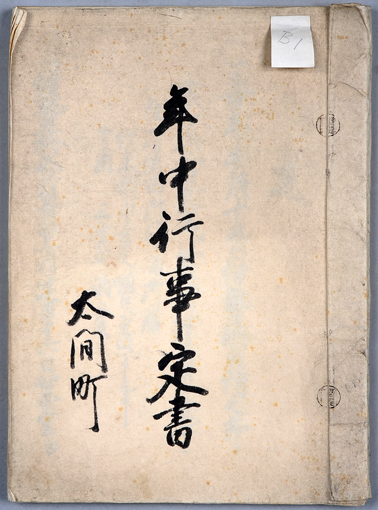 年中行事定書
太間町
B1